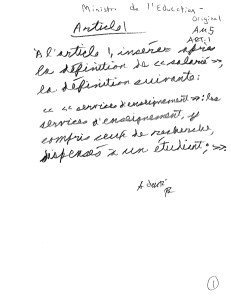 Ministre de l'Education -
Original
Am 5
Art. 1
Article 1
À l'article 1, insérer après
la définition de « salarié »,
la définition suivante:
« « services d'enseignement »: les
services d'enseignement, y
compris ceux de recherche,
dispensés à un étudiant; ».
1